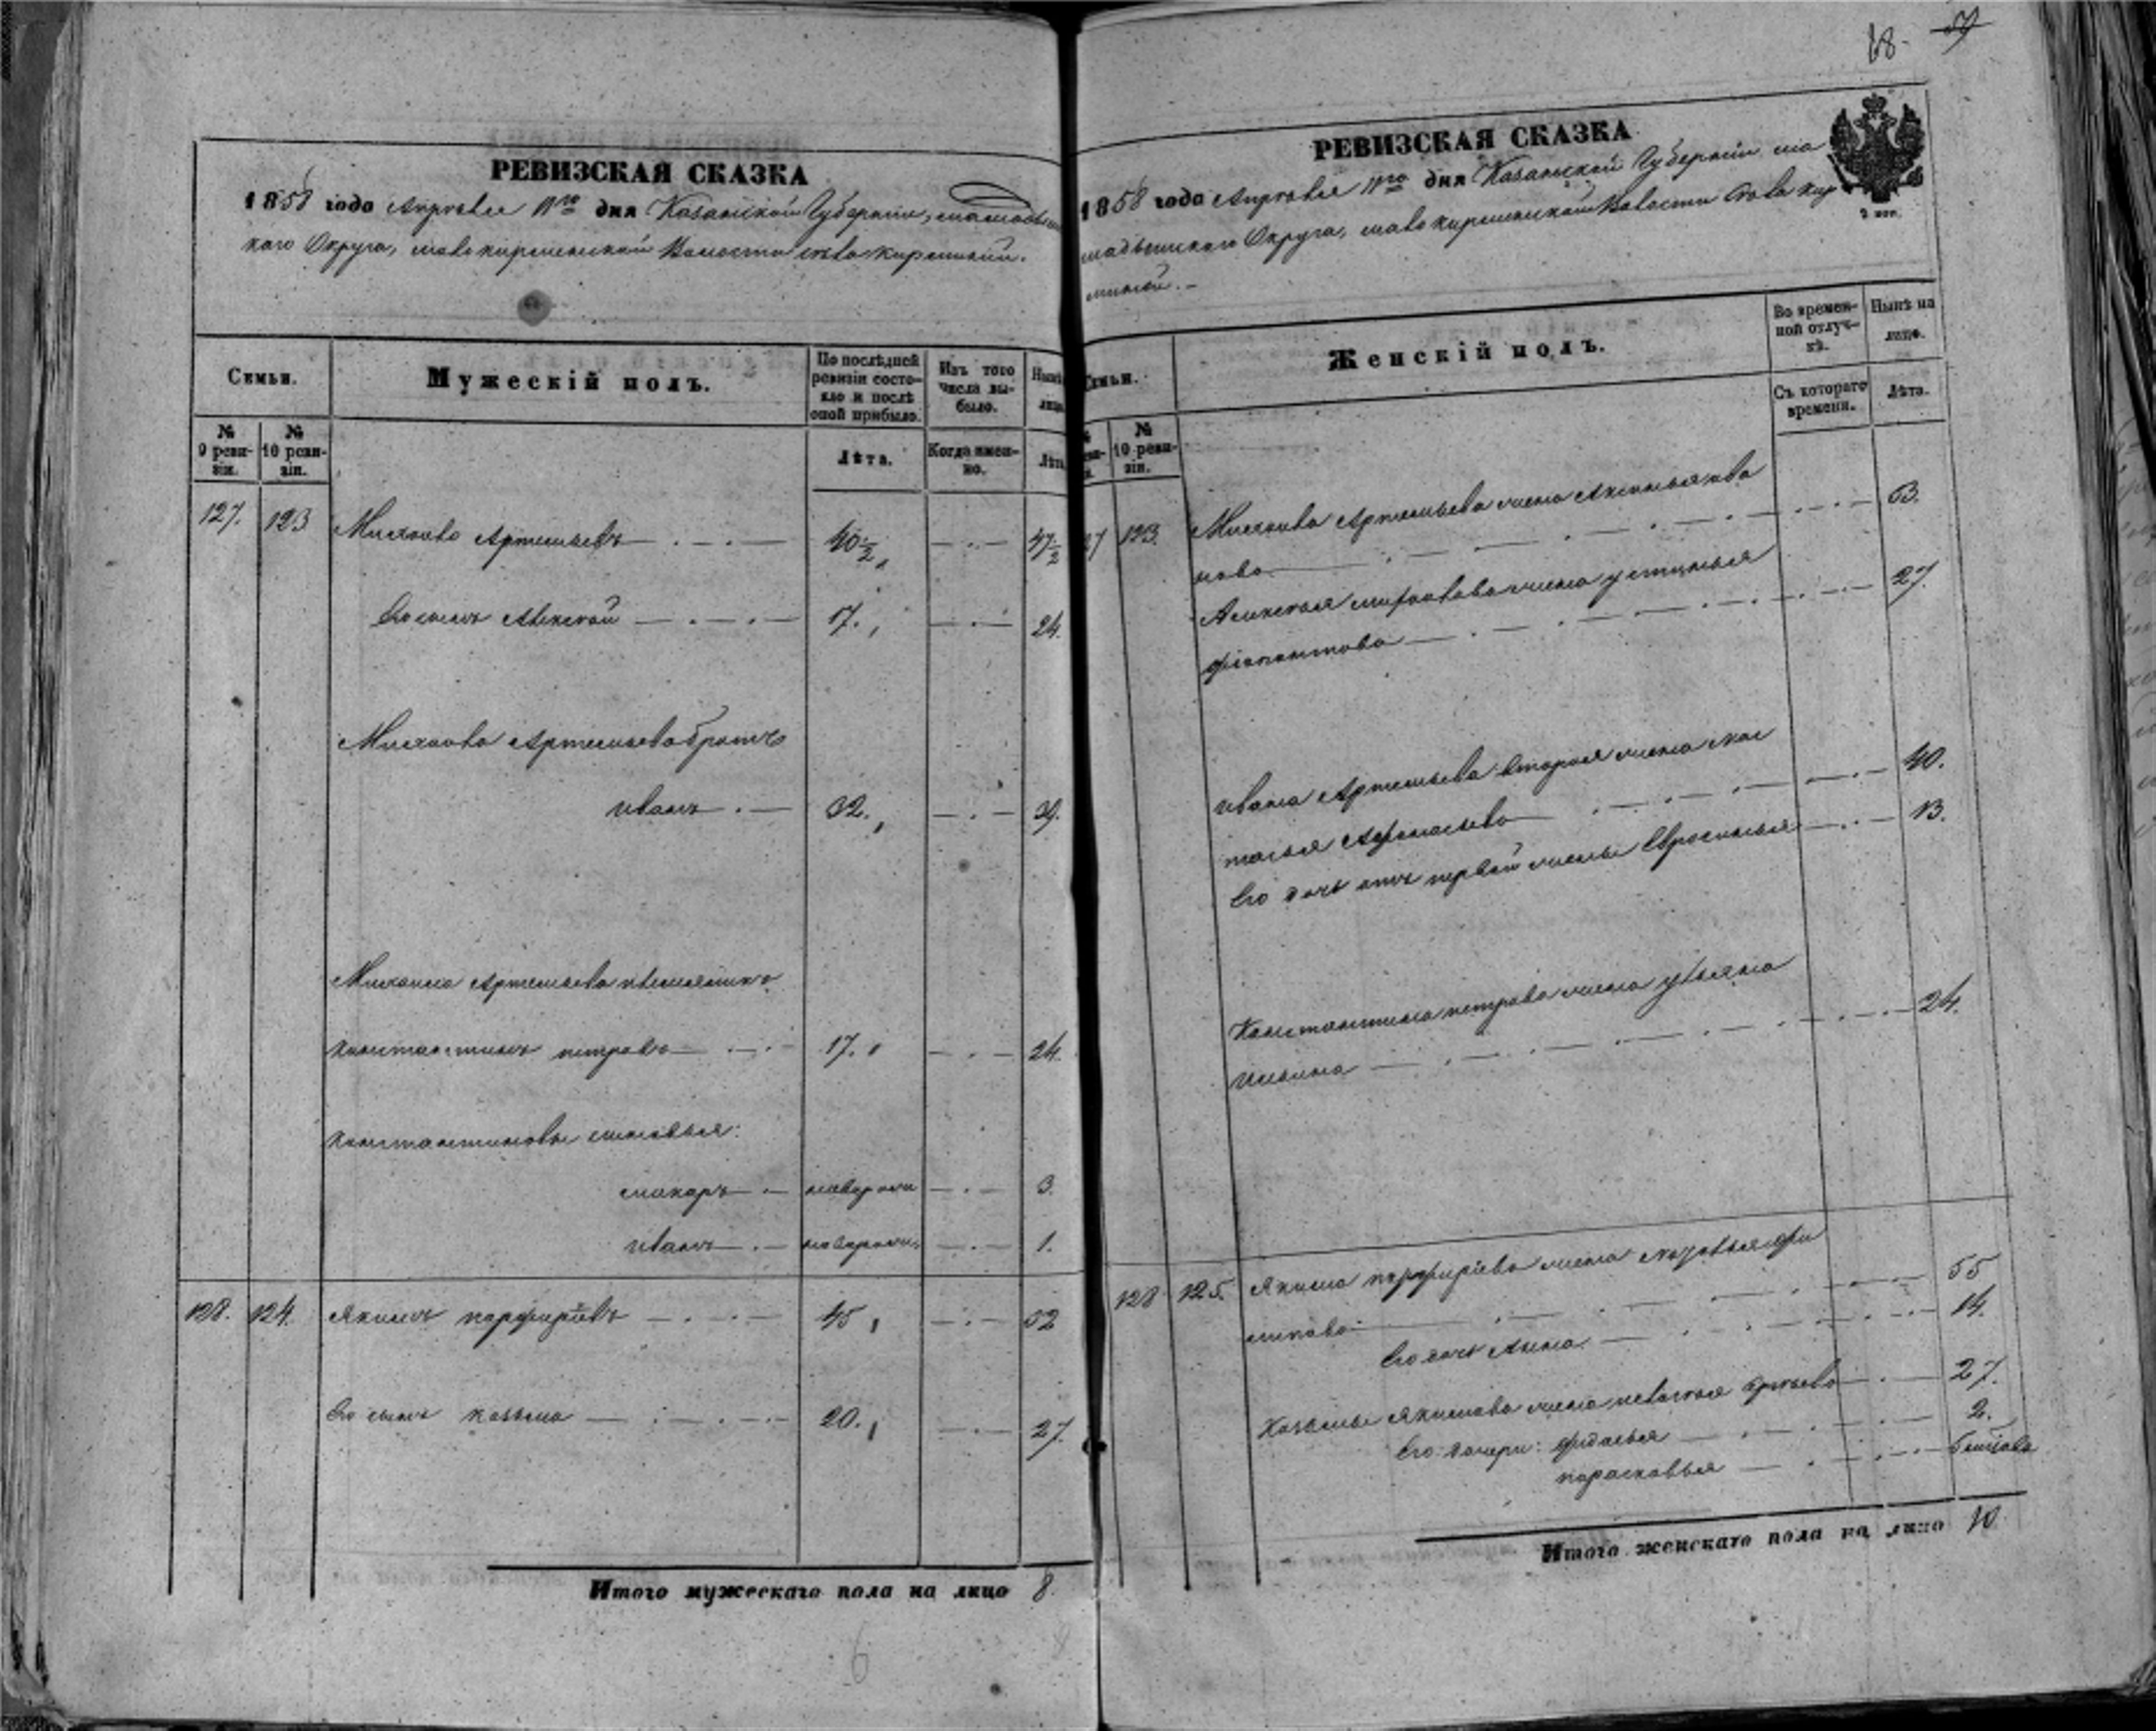 РЕВИЗСКАЯ СКАЗКА
1858 года Апрѣля дня Казанской Губерніи, Мамадыш
каго Округа, Волости
Семьи.
Мужескій полъ.
По послѣдней ревизіи состояло и послѣ оной прибыло.
Изъ того числа выбыло.
№ 9 ревизіи.
№ 10 ревизіи.
Лѣта.
Когда именно.
Лѣта
127. 123 Михаило Артемьевъ 40½ 47½
Его сынъ Алексѣй 17. 24.
Михаила Артемьева братъ
Иванъ 32. 39.
Михаила Артемьева племянникъ
Константинъ Петровъ 17. 24.
Константиновы сыновья:
Макаръ новорож 3.
Иванъ новорож. 1.
128. 124. Якимъ Парфирьевъ 45 52
Его сынъ Казьма 20. 27.
Итого мужескаго пола на лицо 8.
6
18. 59
РЕВИЗСКАЯ СКАЗКА
1858 года Апрѣля дня Казанской Губерніи Ма
мадышскаго Округа, Волости
Женскій полъ.
Во временной отлучкѣ.
Нынѣ на лицо.
№ 10 ревизіи.
Съ котораго времени.
Лѣта.
27 123. Михаила Артемьева жена Аксинья Ива
нова 53.
Алексѣя Михайлова жена Устинья
27.
Ивана Артемьева вторая жена Нас
тасья Афанасьева 40.
Его дочь отъ первой жены Евросинья 13.
Константина Петрова жена Ульяна
Ильина 24.
128 125. Якима Парфирьева жена
55
Его дочь Анна 14.
Казьмы Якимова жена 27.
Его дочери: Фидосья 2.
Парасковья
Итого женскаго пола на лицо 10